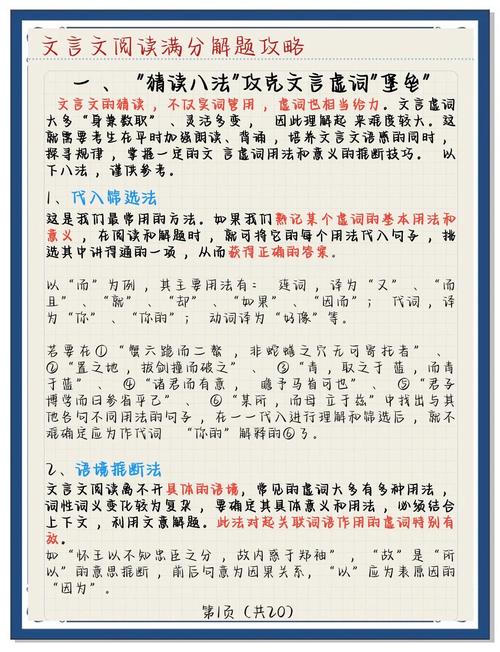 文言文阅读满分解题攻略
一、“猜读八法”攻克文言虚词“堡垒”
文言文的猜读，不仅实词管用，虚词也相当给力。文言虚词
大多“身兼数职”、灵活多变， 因此理解起 来难度较大。这
就需要考生在平时加强朗读、背诵，培养文言文语感的同时，
探寻规律，掌握一定的文 言虚词用法和意义的推断技巧。 以
下八法，谨供参考。
1、代入筛选法
这是我们最常用的方法。如果我们熟记某个虚词的基本用法和
意义，在阅读和解题时，就可将它的每个用法代入句子，挑
选其中讲得通的一项，从而获得正确的答案。
以“而”为例，其主要用法有： 连词，译为“又”、“而
且”、“就”、“却”、“如果”、“因而”； 代词，译
为“你”、“你的”； 动词译为“好像”等。
若要在①“蟹六跪而二螯，非蛇鳝之穴无可寄托者”、
②“置之地，拔剑撞而破之”、 ③“青，取之于 蓝，而青
于蓝”、 ④“诸君而有意， 瞻予马首可也”、 ⑤“君子
博学而日参省乎己”、 ⑥“某所，而母 立于兹”中找出与其
他各句不同用法的句子，在一一代入进行理解和筛选后，就不
难确定应为作代词 “你的”解释的⑥了。
2、语境推断法
文言文阅读离不开具体的语境，常见的虚词大多有多种用法，
词性词义变化较为复杂，要确定其具体意义和用法，必须结合
上下文，利用文意解题。此法对起关联词语作用的虚词特别有
效。
如“怀王以不知忠臣之分，故内惑于郑袖”，“故”是“所
以”的意思推断，前后句意为因果关系，“以”应为表原因的
“因为”。
第1页（共20）